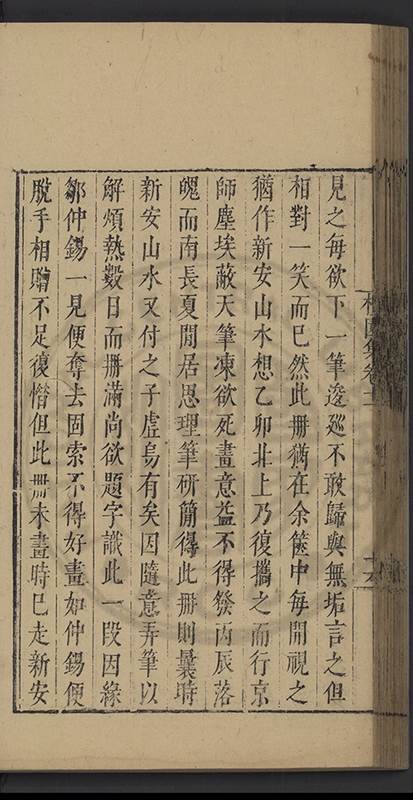 見之每欲下一筆逡廵不敢歸與無垢言之但
相對一笑而已然此册猶在余篋中每開視之
猶作新安山水想乙卯北上乃復攜之而行京
師塵埃蔽天筆凍欲死畫意益不得發丙辰落
魄而南長夏閒居思理筆研簡得此册則曩時
新安山水又付之子虛烏有矣因隨意弄筆以
解煩熱數日而册滿尚欲題字識此一段因緣
鄒仲錫一見便奪去固索不得好畫如仲錫便
脫手相贈不足復惜但此册未畫時已走新安